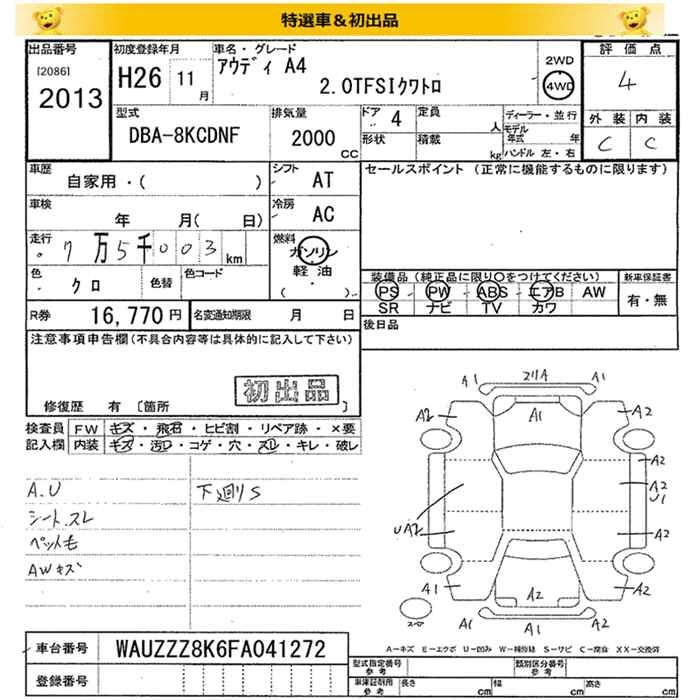 特選車＆初出品
出品番号 初度登録年月 車名・グレード 2WD 評価点
[2086] H26 11月 アウディ A4 4WD 4
2013 2.0TFSIクワトロ
型式 排気量 ドア 4 定員 人 ディーラー・並行 外装 内装
DBA-8KCDNF 2000 CC 形状 積載 kg モデル年式 年 C C
ハンドル 左・右
車歴 自家用・( ) シフト AT セールスポイント (正常に機能するものに限ります)
車検 年 月( 日) 冷房 AC
走行 7万5千003 km 燃料 ガソリン
色 クロ 色替 色コード 軽油 装備品 (純正品に限り○をつけてください) 新車保証書
( ・ ) PS PW ABS エアB AW 有・無
R券 16,770円 名変通知期限 月 日 SR ナビ TV カワ
注意事項申告欄(不具合内容等は具体的に記入して下さい) 後日品
初出品
修復歴 有 [箇所 ]
検査員 FW キズ・飛石・ヒビ割・リペア跡・×要
記入欄 内装 キズ・汚れ・コゲ・穴・スレ・キレ・破レ
A.U 下廻りS
シート.スレ
ペット毛
AWキズ
A1 A1
A2 A1 A2
A2
A2
U1
UA2 A2
A1 A2 A2
A1 A1
スペア
車台番号 WAUZZZ8K6FA041272
登録番号
A－キズ E－エクボ U－凹み W－補修跡 S－サビ C－腐食 XX－交換済
型式指定番号 参考 類別区分番号 参考
車庫証明用 参考 長さ cm 幅 cm 高さ cm